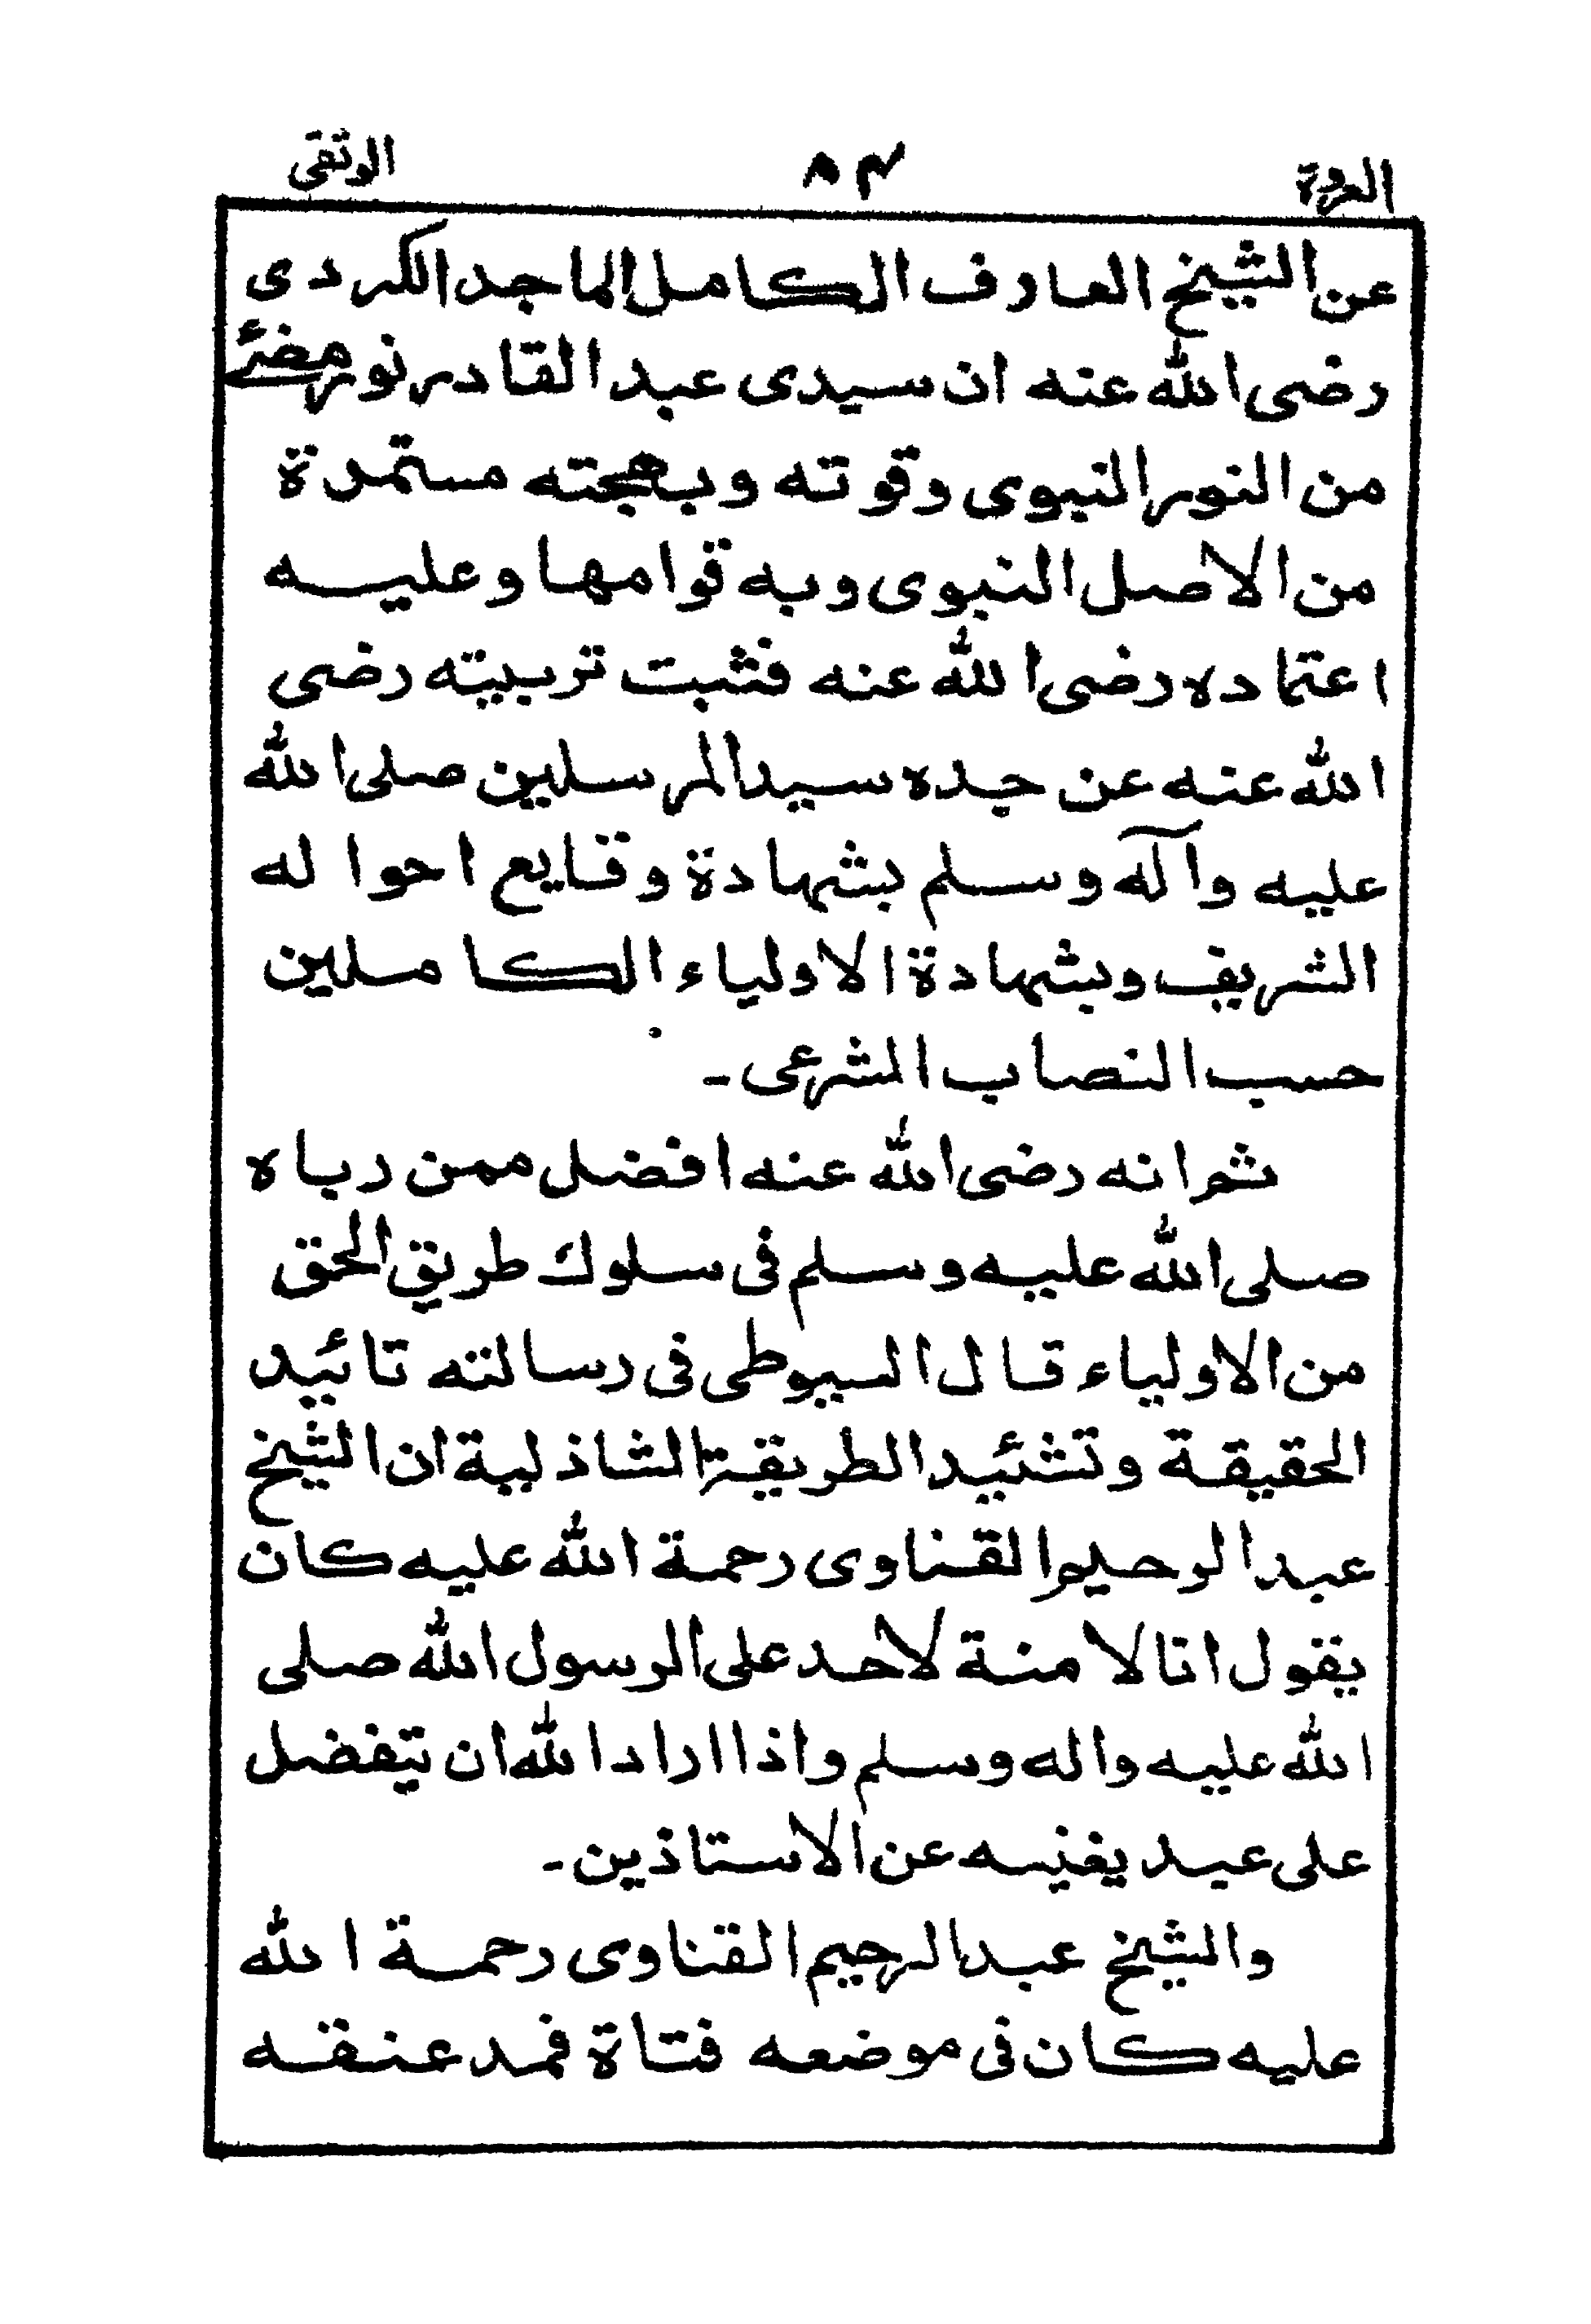 العروة ٨٣ الوثقى
عن الشيخ العارف الكامل الماجد الكردى
رضى الله عنه ان سيدى عبد القادر نور مضئ
من النور النبوى وقوته وبهجته مستمدة
من الاصل النبوى وبه قوامها وعليه
اعتماده رضى الله عنه فثبت تربيته رضى
الله عنه عن جده سيد المرسلين صلى الله
عليه وآله وسلم بشهادة وقايع احواله
الشريف وبشهادة الاولياء الكاملين
حسب النصاب الشرعى -
ثم انه رضى الله عنه افضل ممن رباه
صلى الله عليه وسلم فى سلوك طريق الحق
من الاولياء قال السيوطى فى رسالته تائيد
الحقيقة وتشئيد الطريقة الشاذلية ان الشيخ
عبد الرحيم القناوى رحمة الله عليه كان
يقول انا لا منة لاحد على الرسول الله صلى
الله عليه واله وسلم واذا اراد الله ان يتفضل
على عبد يغنيه عن الاستاذين -
والشيخ عبد الرحيم القناوى رحمة الله
عليه كان فى موضعه فتاة فمد عنقه